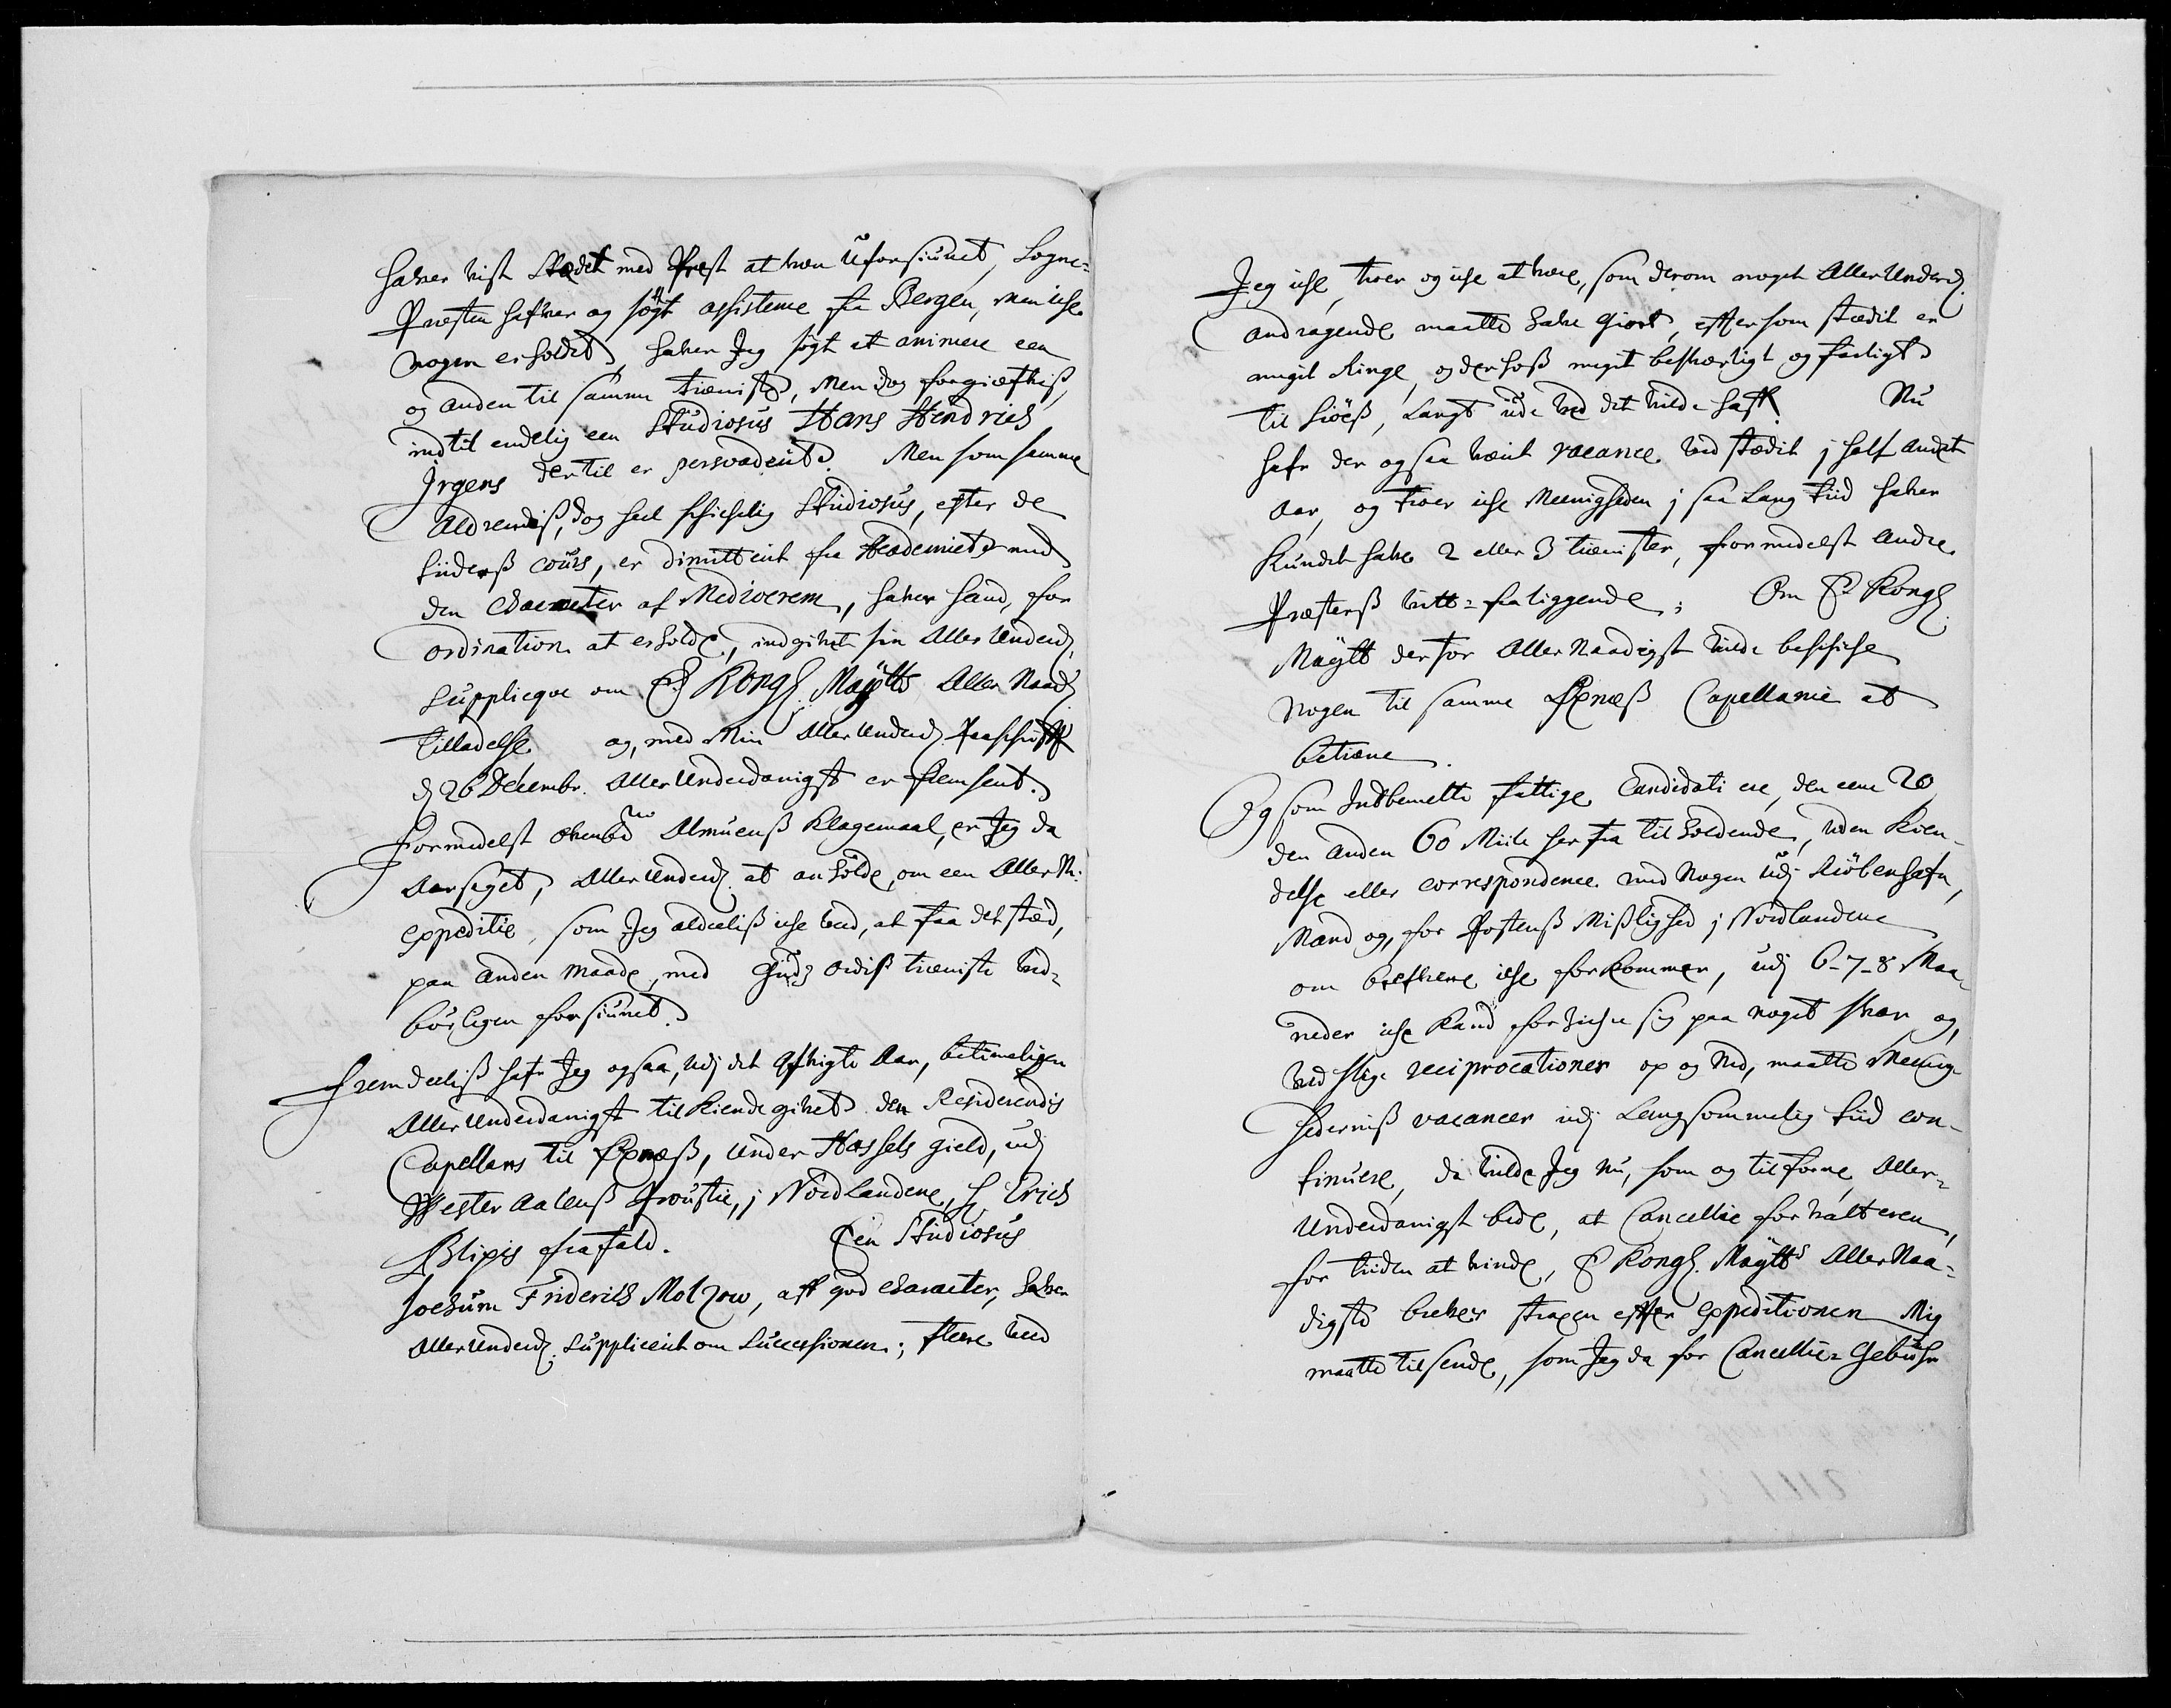 hafver vist Stædet med Prest at være Uforsiunet, Sogne-
Præsten hafver og søgt assistence fra Bergen, men iche
nogen erholdet, hafver Jeg søgt at animere een
og anden til samme tieniste, Men dog forgiæfvis,
indtil endelig een Studiosus Hans Hendrich
Jrgens dertil er persvaderit. Men som samme
Aldrende, dog heel schichelig Studiosus, efter de
tiiders cours, er dimitterit fra Academiet med
den Character af Mediocrem, hafver hand, for
ordination at erholde, indgivet sin Aller Underd.
Supplicqve om Ed. Kongl. Mayts Aller Naad.
Tilladelse og, med Min Aller Underd. Paaschrift
d. 26 Decembr. AllerUnderdanigst er fremsent.
Formedelst ovenbete Almuens Klagemaal, er Jeg da
Aarsaget, AllerUnderd. at anholde, om een Aller N:
expeditie, som Jeg aldeelis iche veed, at faa det stæd,
paa anden maade, med Guds ordis tieniste ved-
børligen forsiunet.
Fremdeelis hafr Jeg ogsaa, udj det afvigte Aar, betimeligen
AllerUnderdanigst tilkiendegivet den Residerendis
Capellans til Øxnæs, under Hassels gield, udj
Vester Aalens Proustie, j Nordlandene, Hr Erich
Blixis frafald. Een Studiosus
Jochum Friderich Molzow, aff god character, hafver
AllerUnderd. Supplicerit om Successionen; fleere veed
Jeg iche, troer og iche at være, som derom noget AllerUnderd.
andragende maatte hafve giort, eftersom stædit er
meget Ringe, og derhos meget besværligt og farligt
til Siøes, Langt ude ved det vilde haff. Nu
hafr der ogsaa værit vacance ved stædit j half andet
Aar, og troer iche Meenigheden j saa Lang tiid hafver
Kundet hafve 2 eller 3 tienister, formedelst andre
Præsters vitt-fraliggende; Om Ed. Kongl.
Maytt derfor Aller Naadigst vilde beschiche
nogen til samme Øxnæs Capellanie at
betiene.
Og som Indbemelte fattige Candidati ere, den eene 20
den anden 60 Miile herfra tilholdende, uden Kien-
delse eller correspondence med Nogen udj Kiøbenhafn,
Mand og, for Postens Mislighed j Nordlandene
om brefvene iche forkommer, udj 6-7-8 Maa-
neder iche Kand forviche sig paa noget svar og,
ved slige reciprocationer op og Ned, maatte Meenig-
hedernis vacancer udj Langsommelig tiid con-
tinuere, da vilde Jeg nu, som og tilforne, Aller-
Underdanigst bede, at Cancellie forvalteren,
for tiiden at vinde, Ed Kongl. Maytts AllerNaa-
digste brever straxen efter expeditionen Mig
maatte tilsende, som Jeg da for Cancellie-Gebuhr